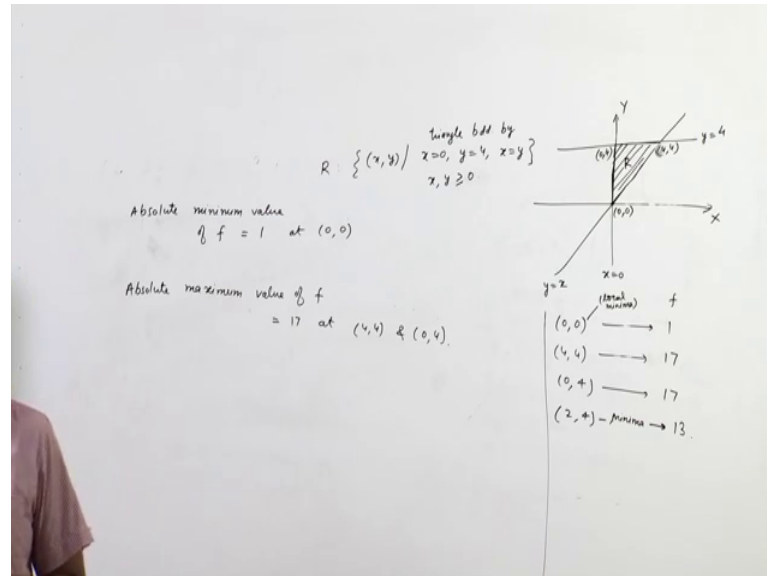 triangle bdd by
R : {(x, y) / x=0, y=4, x=y}
x, y ≥ 0
Absolute minimum value
of f = 1 at (0,0)
Absolute maximum value of f
= 17 at (4,4) & (0,4).
Y
y=4
(4,4)
R
(0,0)
X
x=0
(local minima)
f
(0,0) → 1
(4,4) → 17
(0,4) → 17
(2,4) – Minima → 13.